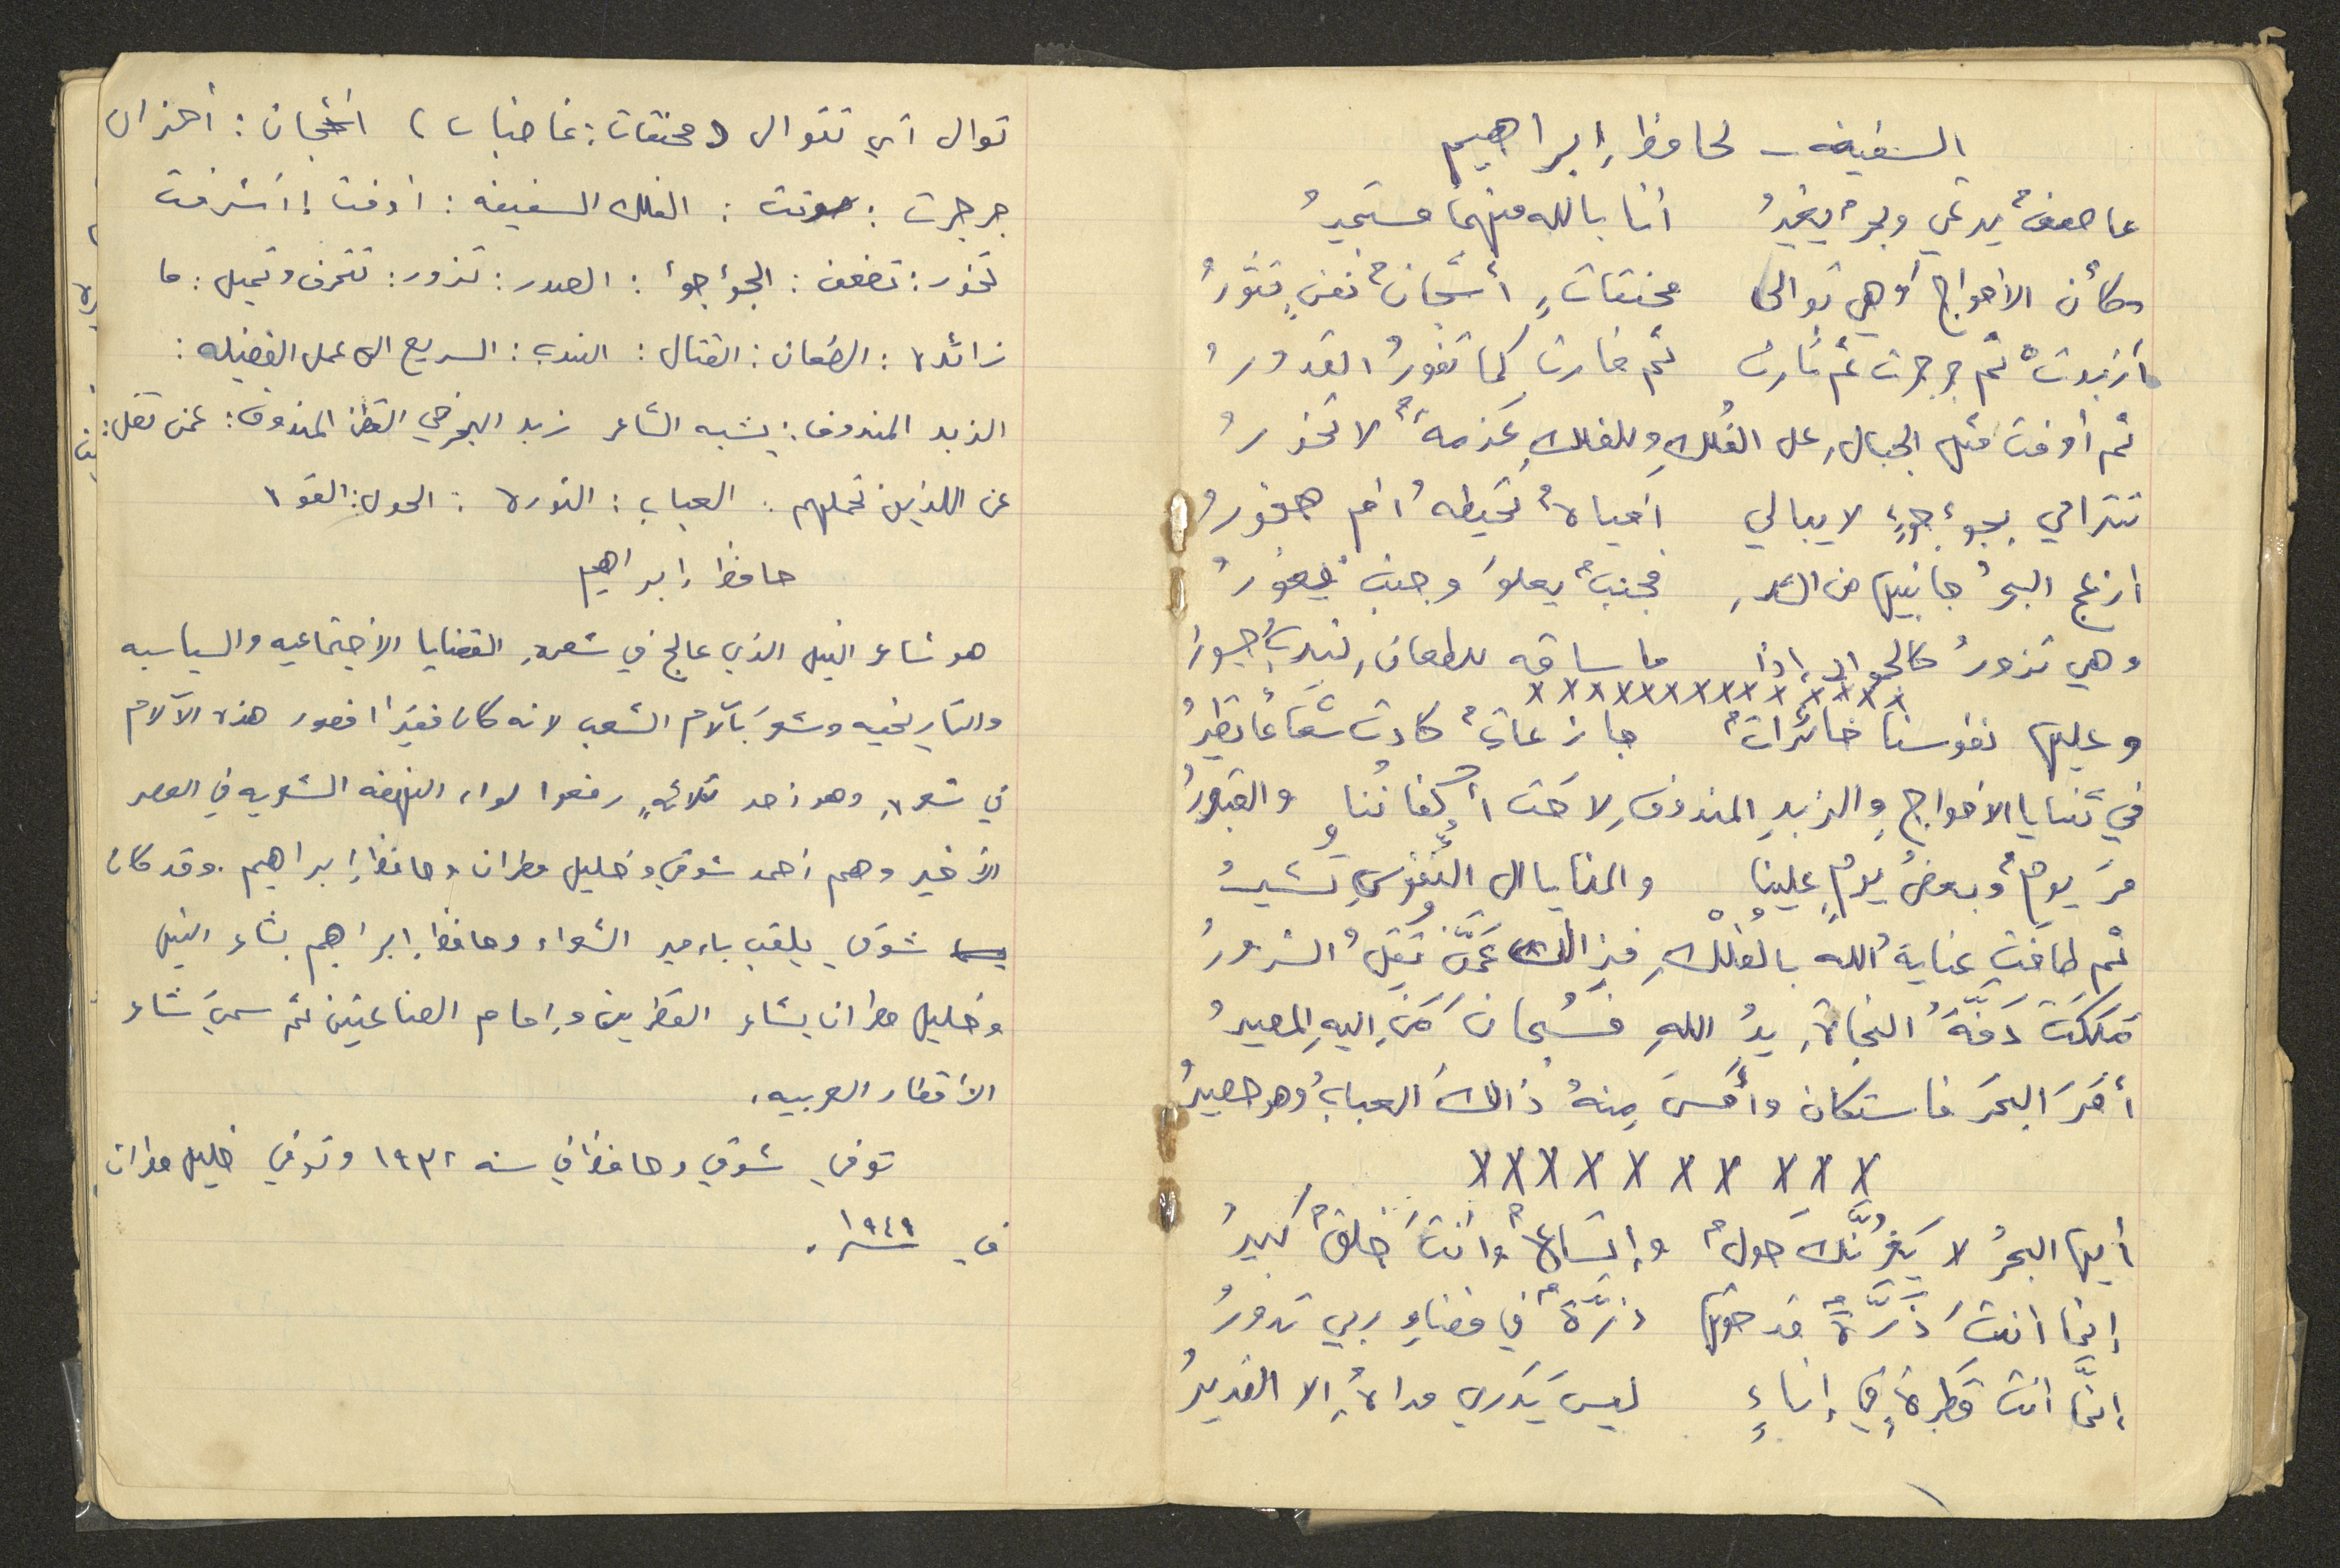 السفينه - لحافظ إبراهيم
عاصفٌ يرتمي وبحرٌ يغيرُ أنا بالله منهما مستجيرُ
وكأن الأمواج وهي توالى محنقاتٍ أشجانُ نفسٍ تثورُ
أزبدت ثم جرجرت ثم ثارت ثم فارت كما تفورُ القدورُ
ثم أوفت مثل الجبال على الفُلكِ وللفلكِ عزمةٌ لا تخورُ
تترامى بجوءجوءٍ لا يبالي أمياهٌ تحيطه أم صخورُ
أزعج البحرُ جانبيها من الشدِ فجنبٌ يعلو وجنب يغورُ
وهي تزورُ كالجواد إذا ما ساقه للطعان ندبٌ جسورا
xxxxxxxxxxxxxx
وعليها نفوسنا خائراتٌ جازعاتٌ كادت شعاعاً تطيرُ
في ثنايا الأمواج والزبدِ المندوف لاحت أكفاننا والقبورُ
مرَ يومٌ وبعضُ يومٍ علينا والمنايا الى النفوسِ تشيرُ
ثم طافت عناية الله بالفلكِ فزالت عمَّن تقلُ الشرورُ
مَلكَت دفَّةُ النجاةِ يدُ اللهِ فسُبحان مَن اليهِ المصيرُ
أمَرَ البحرَ فاستكان وأمسَى مِنهُ ذالكَ العبابُ وهو حصيرُ
xxxxxxxxxx
أيها البحرُ لا يَغرُنَّكَ حولٌ وإتساعٌ وأنتَ خلقٌ كبيرُ
إنما أنتَ ذَرَّةٌ قد حوتها ذرَّةٌ في فضاءِ ربي تدورُ
إنَّما انت قطرةٌ في إناءٍ ليسَ يَدري مداهُ إلا القديرُ
توالى أي تتوالى محنقات: غاضبات، اشجان: أحزان
جرجرت: صوتت: الفلك السفينه: اوفت: اشرفت
تخور: تضعف: الجؤجؤ: الصدر: تزور: تنحرف وتميل: ما
زائده: الطعان: القتال: الندب: السريع الى عمل الفضيله:
الزبد المندوف: يشبه الشاعر زبد البحر في القطن المندوف: عمن تقل:
عن اللذين تحملهم: العباب: الثوره: الحول: القوا
حافظ إبراهيم
هو شاعر النيل الذي عالج في شعره القضايا الأجتماعيه والسياسيه
والتاريخيه وشعرَ بآلام الشعب لانه كان فقيرا فصور هذه الآلام
في شعره وهو أحد ثلاثهٍ رفعوا لواء النهضه الشعريه في العصر
الأخير وهم أحمد شوقي وخليل مطران وحافظ إبراهيم. وقد كان
شوقي يلقب بامير الشعراء وحافظ إبراهيم بشاعر النيل
وخليل مطران بشاعر القطرين وإمام الصناعتين ثم سمي شاعر
الأقطار العربيه.
توفي شوقي وحافظ في سنه ١٩٣٢ وتوفي خليل مطران
في ١٩٤٩.